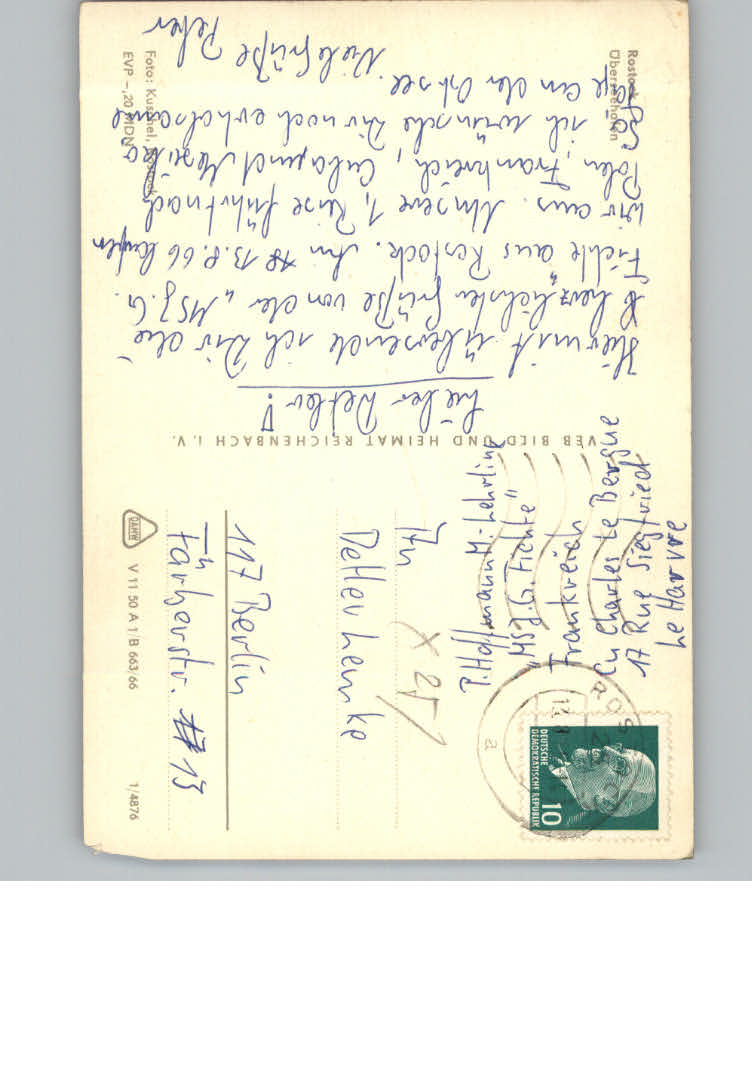 Rostock
Überseehafen
Lieber Detlev!
Hiermit übersende ich Dir die
herzlichsten Grüße von der „MS J. G.
Fichte" aus Rostock. Am 13.8.66 laufen
wir aus. Unsere 1. Reise führt nach
Polen, Frankreich, Cuba und Mexiko
Ich wünsche Dir noch erholsame
Tage an der Ostsee.
Viele Grüße Peter
Foto: Kuschel, Rostock
EVP –,20 MDN
VEB BILD UND HEIMAT REICHENBACH i. V.
P. Hoffmann M.-Lehrling
"MS J. G. Fichte"
Frankreich
Charles le Bergne
17 Rue Siegfried
Le Havre
An
Detlev Lemke
117 Berlin
Färberstr. 13
X 25
ROSTOCK
a
DEUTSCHE
DEMOKRATISCHE REPUBLIK
10
DAMW
V 11 50 A 1/B 663/66
1/4876